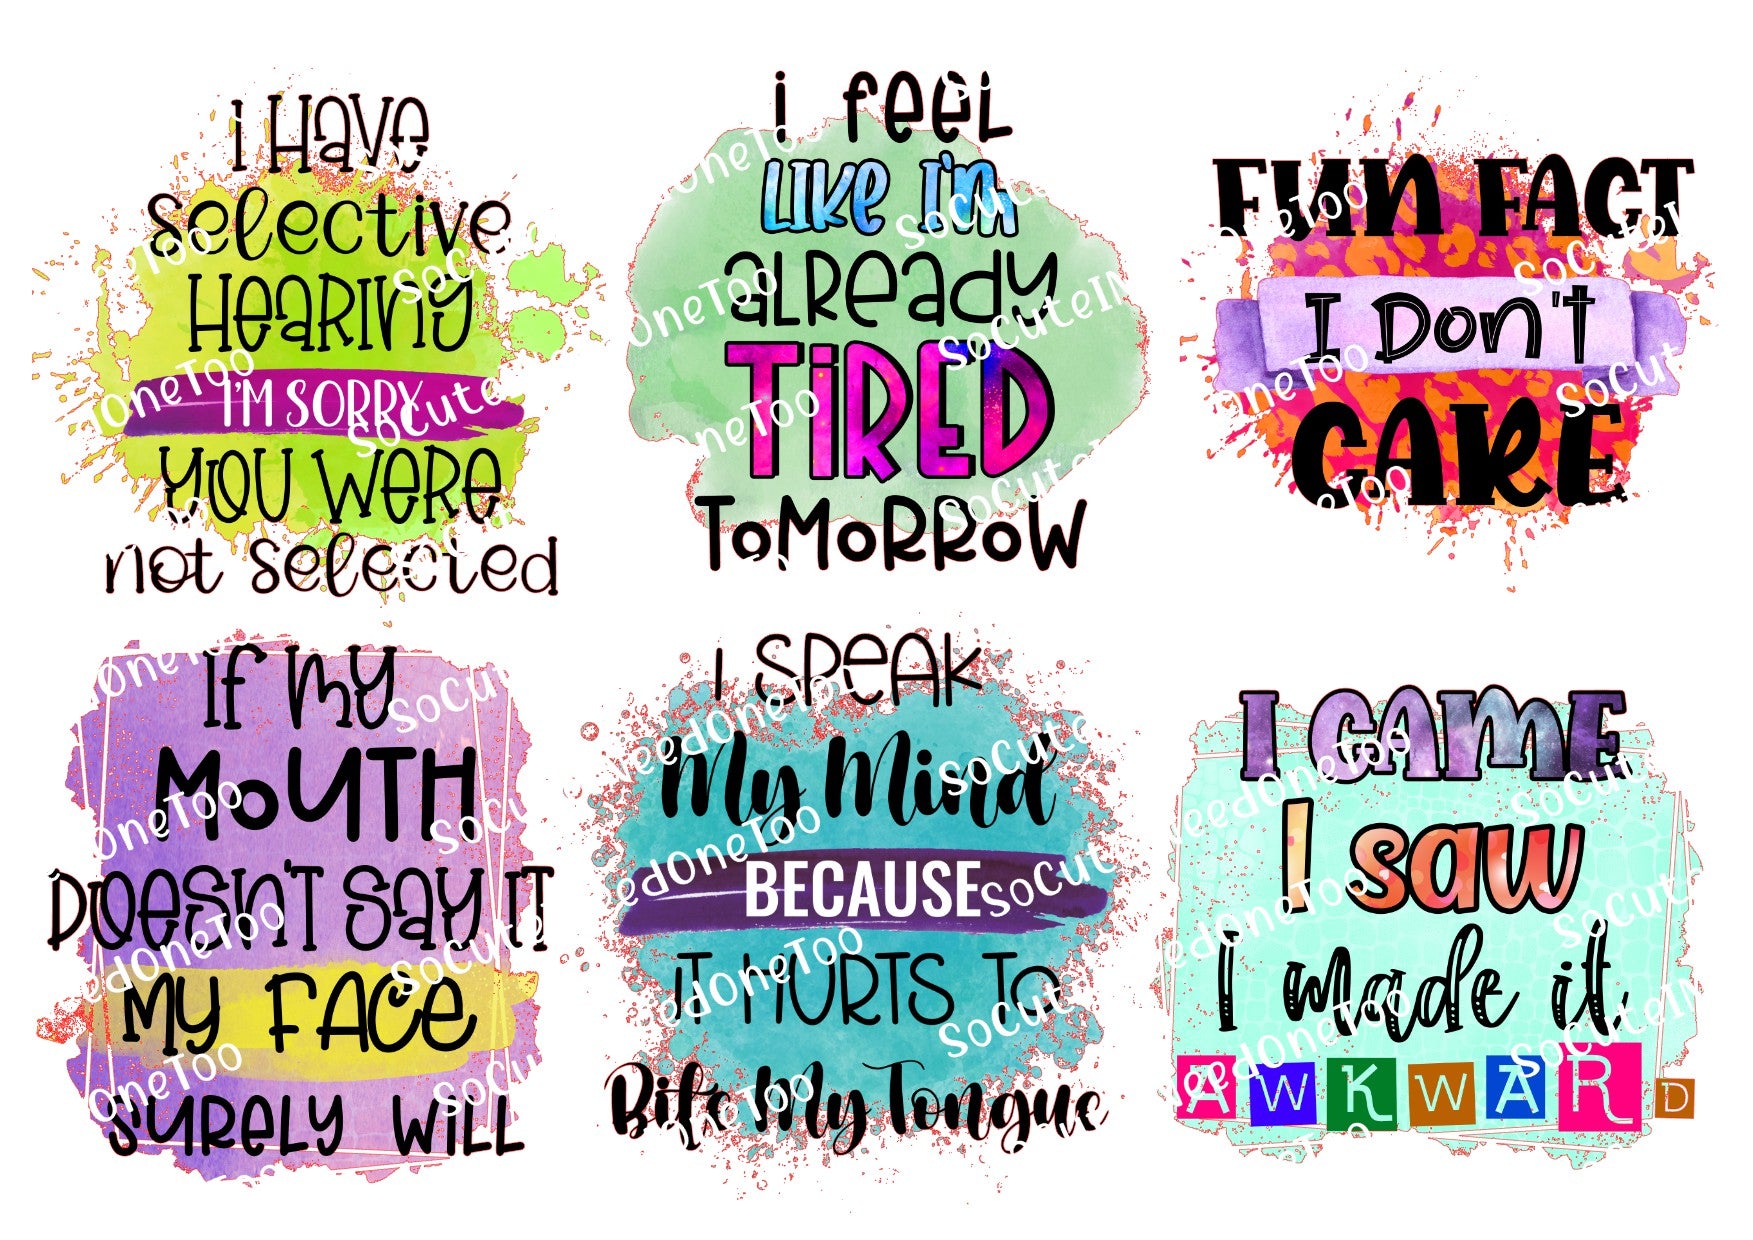 I Have
Selective
Hearing
I'M SORRY
You Were
not Selected
I feel
Like I'm
already
TiRED
ToMoRRoW
FUN FACT
I Don't
CARE
If my
MoUTH
Doesn't Say It
My Face
Surely Will
I Speak
My Mind
BECAUSE
It Hurts To
Bite My Tongue
I CAME
I saw
I made it
AWKWARD
SoCute
OneToo